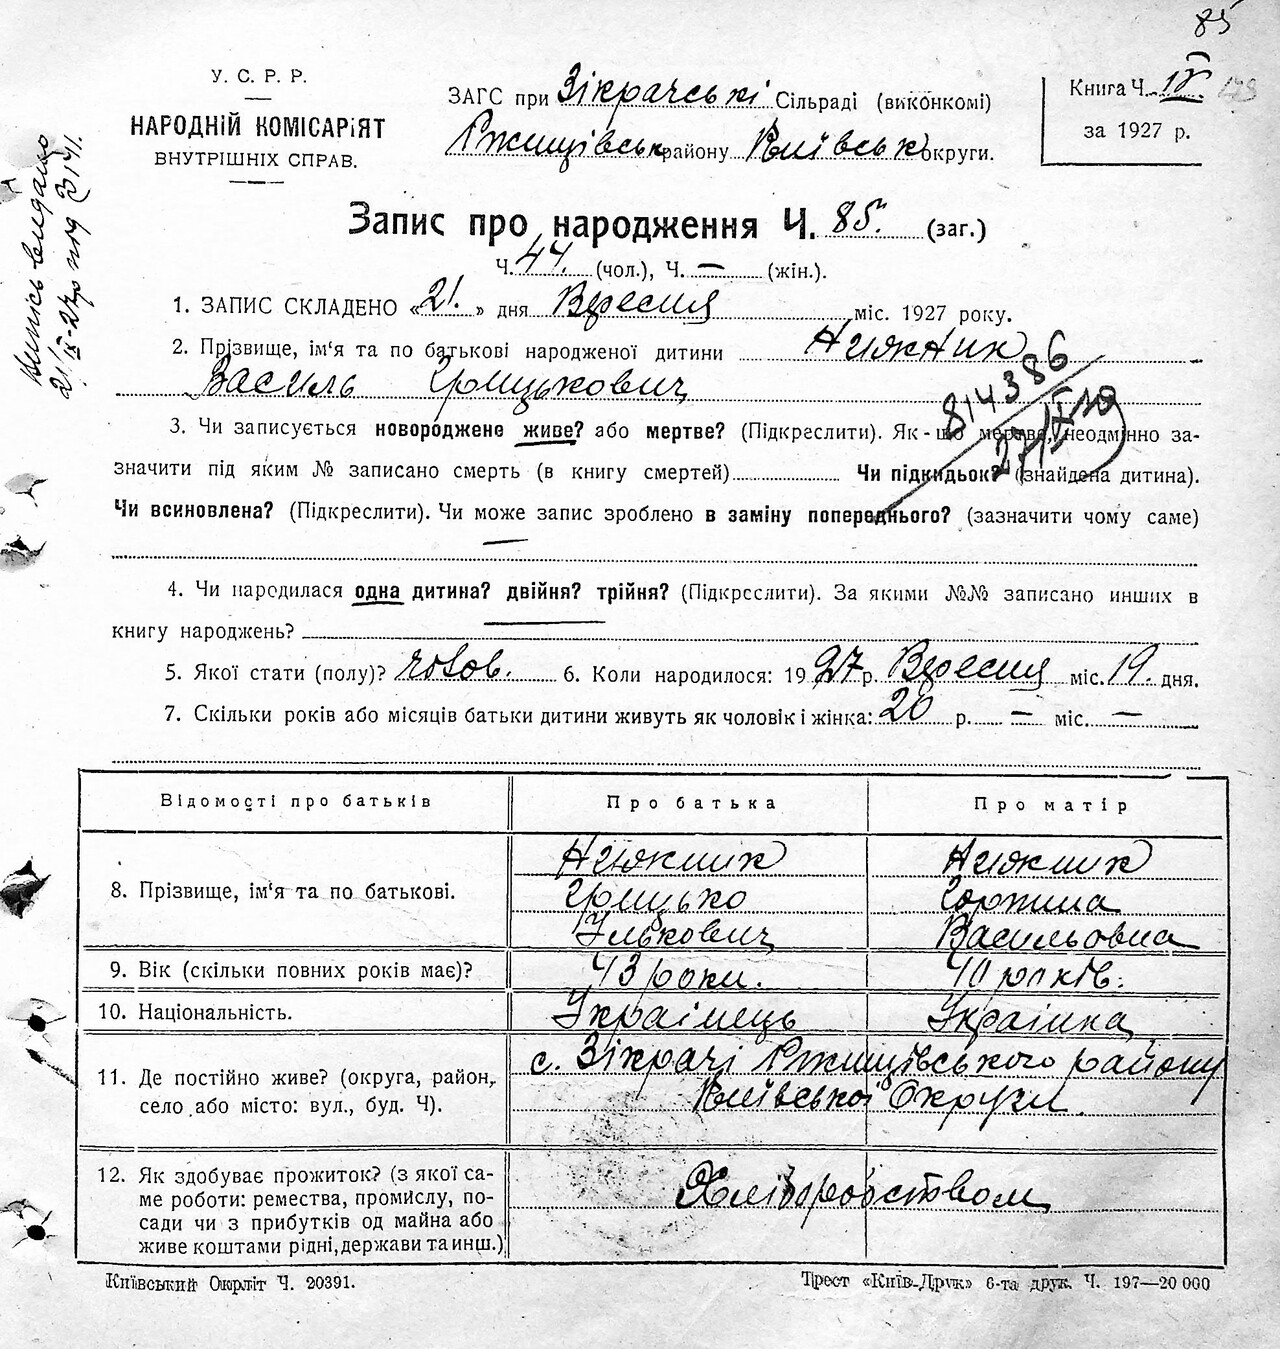 85
У. С. Р. Р.
НАРОДНІЙ КОМІСАРІЯТ
ВНУТРІШНІХ СПРАВ.
ЗАГС при Зікрачські Сільраді (виконкомі)
Ржищівськ району Київськ округи.
Книга Ч. IV 149
за 1927 р.
Випись видано
21/IX-27р під 3141.
Запис про народження Ч. 85. (заг.)
Ч. 44. (чол.), Ч. — (жін.).
1. ЗАПИС СКЛАДЕНО «21.» дня Вересня міс. 1927 року.
2. Прізвище, ім'я та по батькові народженої дитини Нижник
Василь Грицькович
814386
27/IX
3. Чи записується новороджене живе? або мертве? (Підкреслити). Як-що мертве, неодмінно за-
значити під яким № записано смерть (в книгу смертей) Чи підкидьок? (знайдена дитина).
Чи всиновлена? (Підкреслити). Чи може запис зроблено в заміну попереднього? (зазначити чому саме)
4. Чи народилася одна дитина? двійня? трійня? (Підкреслити). За якими №№ записано инших в
книгу народжень?
5. Якої стати (полу)? чолов. 6. Коли народилося: 1927 р. Вересня міс. 19. дня.
7. Скільки років або місяців батьки дитини живуть як чоловік і жінка: 20 р. — міс. —
Відомості про батьків Про батька Про матір
8. Прізвище, ім'я та по батькові.
Нижник Нижник
Грицько Горпина
Улькович Васильовна
9. Вік (скільки повних років має)? 43 роки. 40 років.
10. Національність. Українець Українка
11. Де постійно живе? (округа, район,
село або місто: вул., буд. Ч).
с. Зікрачі Ржищівського району
Київської Округи.
12. Як здобуває прожиток? (з якої са-
ме роботи: ремества, промислу, по-
сади чи з прибутків од майна або
живе коштами рідні, держави та инш.)
Хліборобством
Київський Окрліт Ч. 20391.
Трест «Київ-Друк» 6-та друк. Ч. 197—20 000